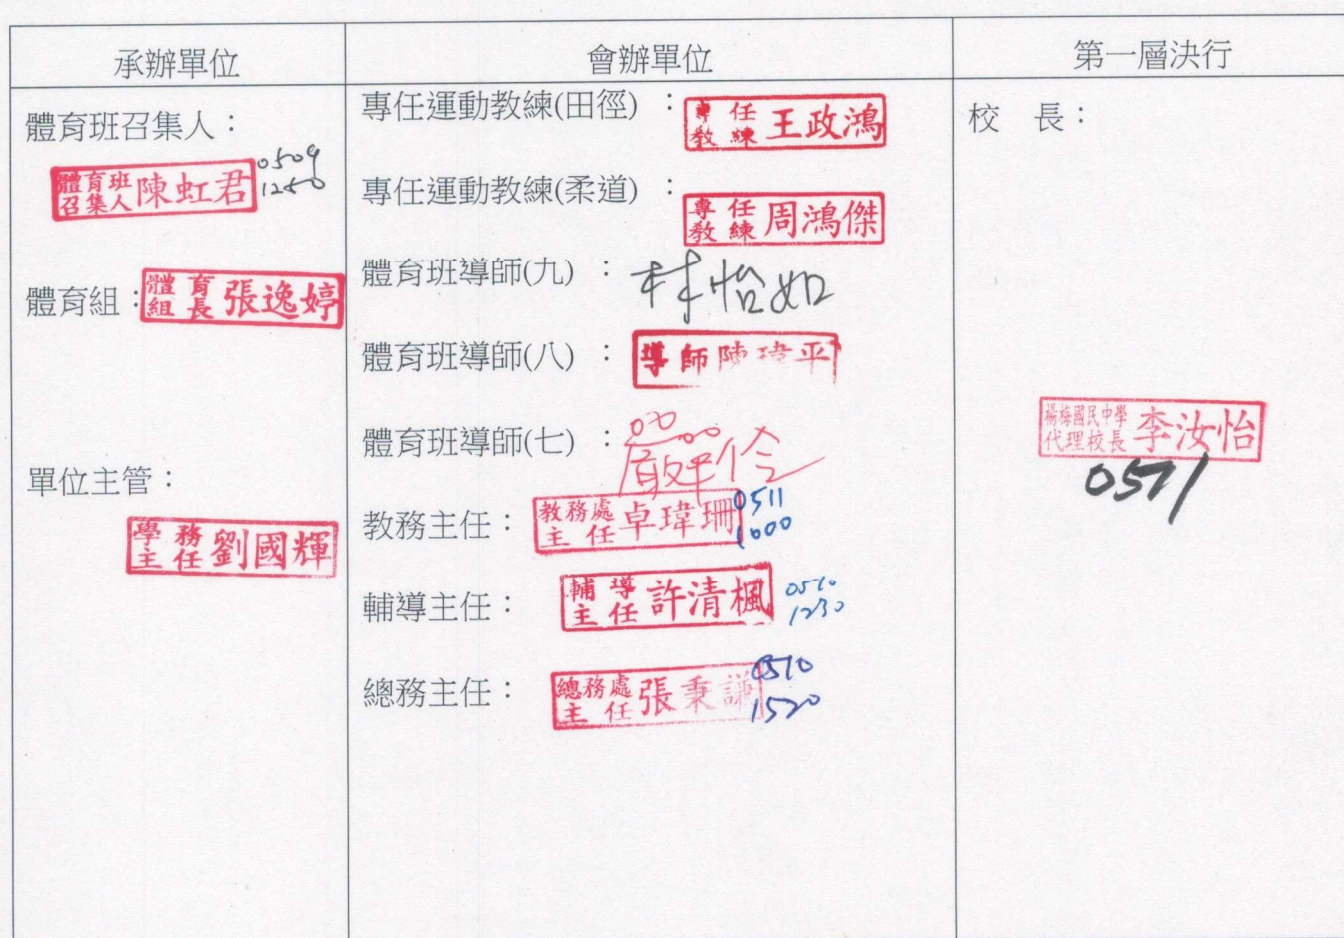 承辦單位
體育班召集人：
體育班召集人 陳虹君 0509 1250
體育組：體育組長 張逸婷
單位主管：
學務主任 劉國輝
會辦單位
專任運動教練(田徑)：專任教練 王政鴻
專任運動教練(柔道)：專任教練 周鴻傑
體育班導師(九)：林怡如
體育班導師(八)：導師 陳瑋平
體育班導師(七)：
教務主任：教務處主任 卓瑋珊 0511 1000
輔導主任：輔導主任 許清楓 0510 1230
總務主任：總務處主任 張秉謙 0510 1520
第一層決行
校 長：
楊梅國民中學代理校長 李汝怡
0511